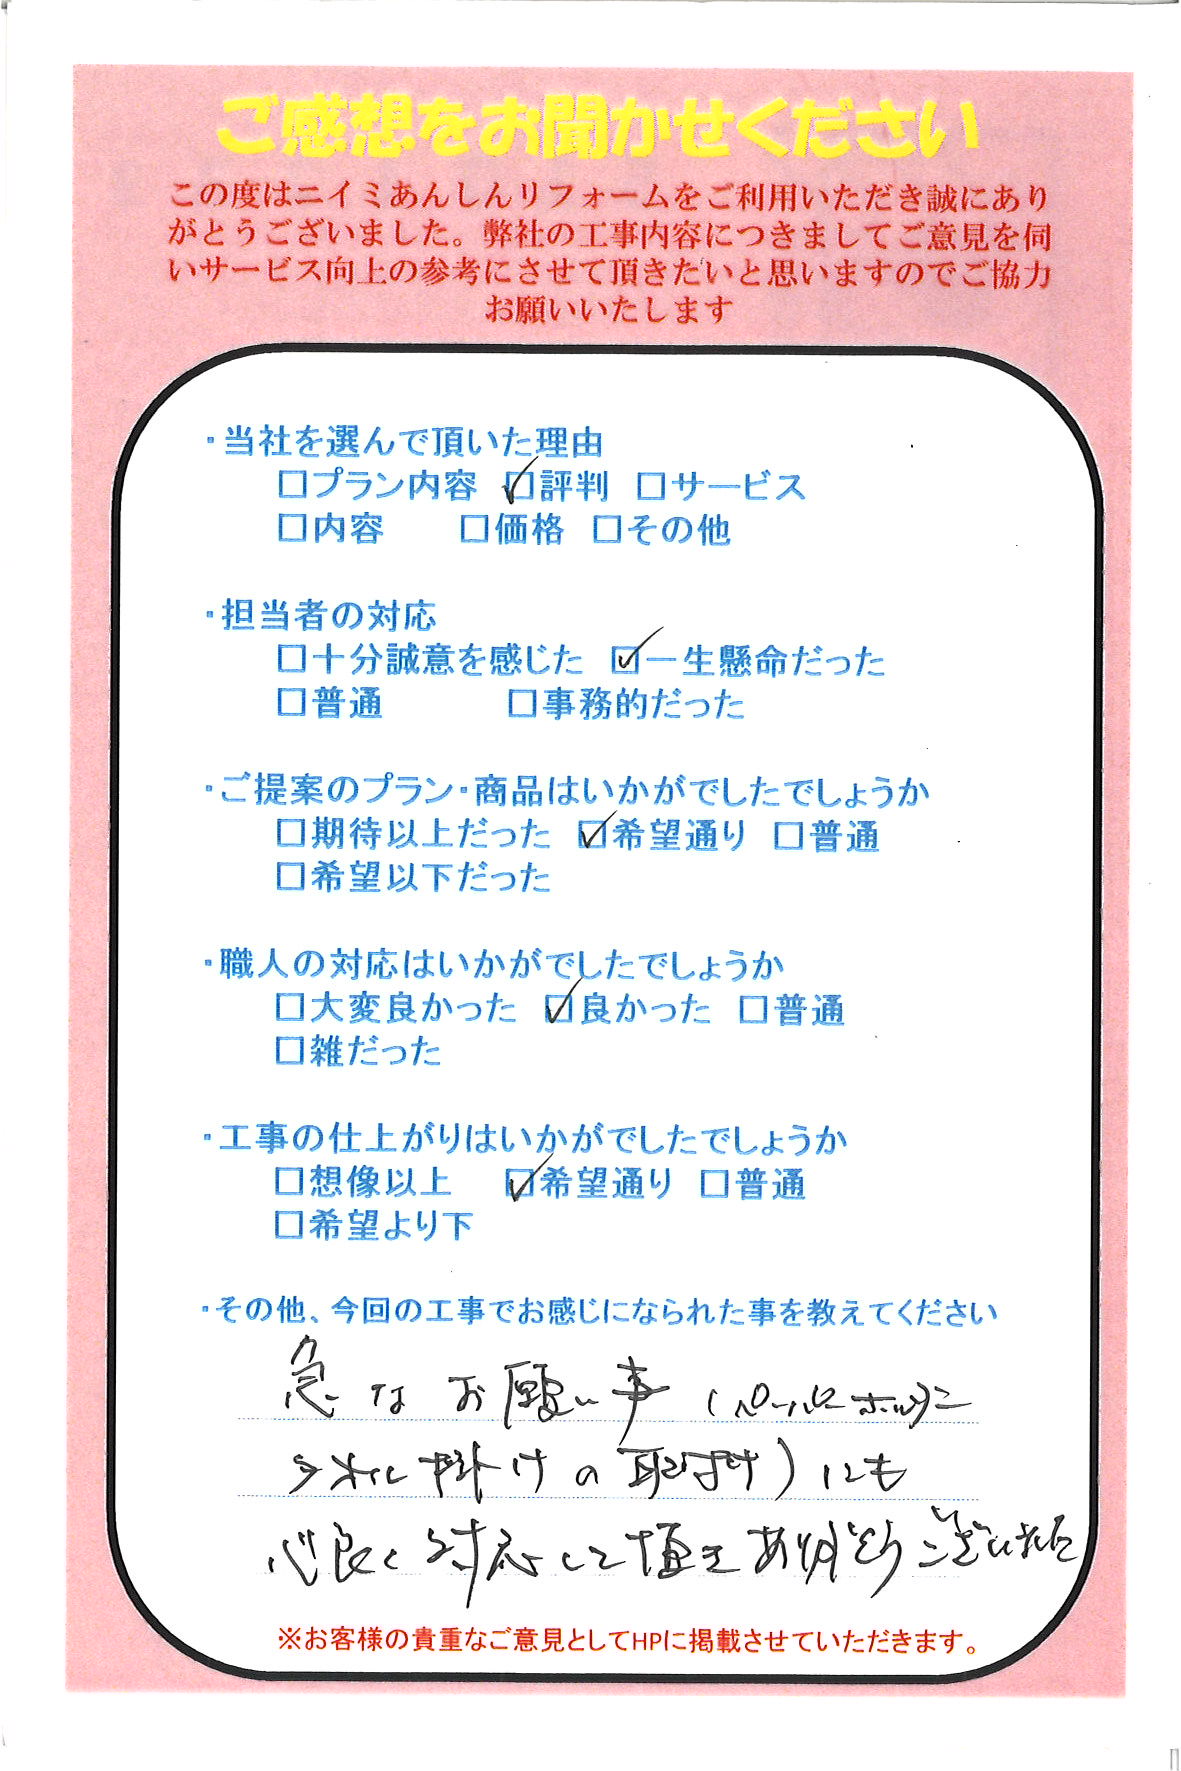 ご感想をお聞かせください
この度はニイミあんしんリフォームをご利用いただき誠にあり
がとうございました。弊社の工事内容につきましてご意見を伺
いサービス向上の参考にさせて頂きたいと思いますのでご協力
お願いいたします
・当社を選んで頂いた理由
□プラン内容 ☑評判 □サービス
□内容 □価格 □その他
・担当者の対応
□十分誠意を感じた ☑一生懸命だった
□普通 □事務的だった
・ご提案のプラン・商品はいかがでしたでしょうか
□期待以上だった ☑希望通り □普通
□希望以下だった
・職人の対応はいかがでしたでしょうか
□大変良かった ☑良かった □普通
□雑だった
・工事の仕上がりはいかがでしたでしょうか
□想像以上 ☑希望通り □普通
□希望より下
・その他、今回の工事でお感じになられた事を教えてください
急なお願い事（ペーパーホルダー
タオル掛けの取付け）にも
心良く対応して頂きありがとうございました
※お客様の貴重なご意見としてHPに掲載させていただきます。